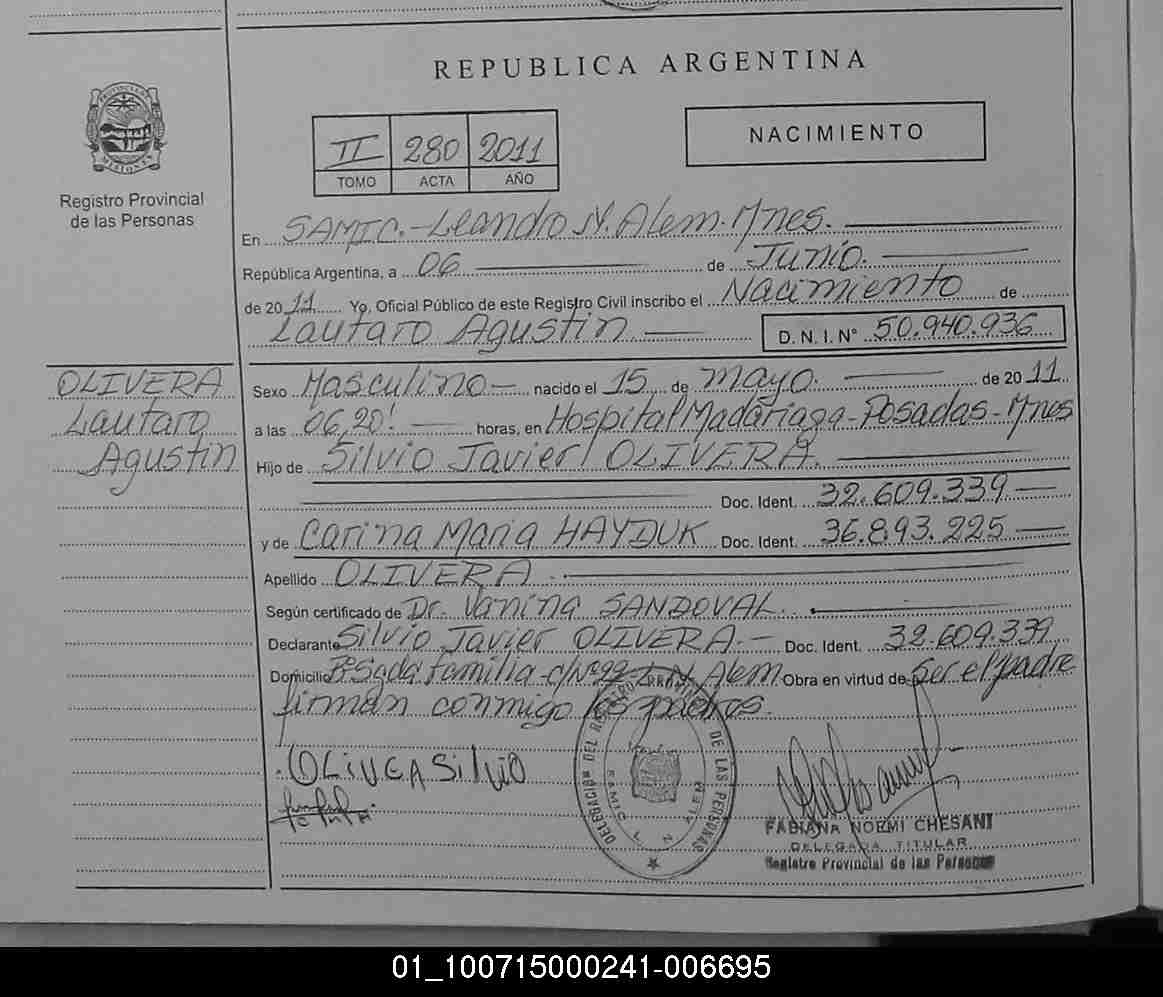 REPUBLICA ARGENTINA
PROVINCIA DE MISIONES
Registro Provincial
de las Personas
II 280 2011
TOMO ACTA AÑO
NACIMIENTO
En SAMIC.-Leandro N. Alem. Mnes.
República Argentina, a 06 de Junio.
de 2011 Yo, Oficial Público de este Registro Civil inscribo el Nacimiento de
Lautaro Agustin D. N. I. N° 50.940.936
OLIVERA
Lautaro
Agustin
Sexo Masculino- nacido el 15 de mayo. de 2011
a las 06,20! horas, en Hospital Madariaga-Posadas-Mnes
Hijo de Silvio Javier OLIVERA.
Doc. Ident. 32.609.339
y de Carina Maria HAYDUK Doc. Ident. 36.893.225
Apellido OLIVERA.
Según certificado de Dr. Vanina SANDOVAL.
Declarante Silvio Javier OLIVERA.- Doc. Ident. 32.609.339
Domicilio B° Sgda familia-c/N°22-L.N. Alem Obra en virtud de Ser el padre
firman conmigo los padres.
OLIVERA Silvio
DELEGACION DEL REGISTRO PROVINCIAL DE LAS PERSONAS
SAMIC L. N.
FABIANA NOEMI CHESANI
DELEGADA TITULAR
Registro Provincial de las Personas
01_100715000241-006695